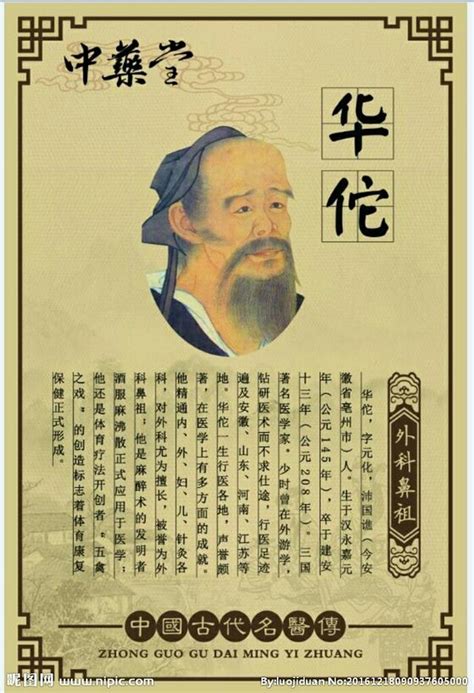 中藥堂
华佗
外科鼻祖
华佗，字元化，沛国谯（今安
徽省亳州市）人。生于汉永嘉元
年（公元145年），卒于建安
十三年（公元208年）。三国
著名医学家。少时曾在外游学，
钻研医术而不求仕途，行医足迹
遍及安徽、山东、河南、江苏等
地。华佗一生行医各地，声誉颇
著，在医学上有多方面的成就。
他精通内、外、妇、儿、针灸各
科，对外科尤为擅长，被誉为外
科鼻祖；他是麻醉术的发明者
酒服麻沸散正式应用于医学；
他还是体育疗法开创者“五禽
之戏”的创造标志着体育康复
保健正式形成。
中國古代名醫傳
ZHONG GUO GU DAI MING YI ZHUANG
昵图网 www.nipic.com
By:luojiduan No:20161218090937605000